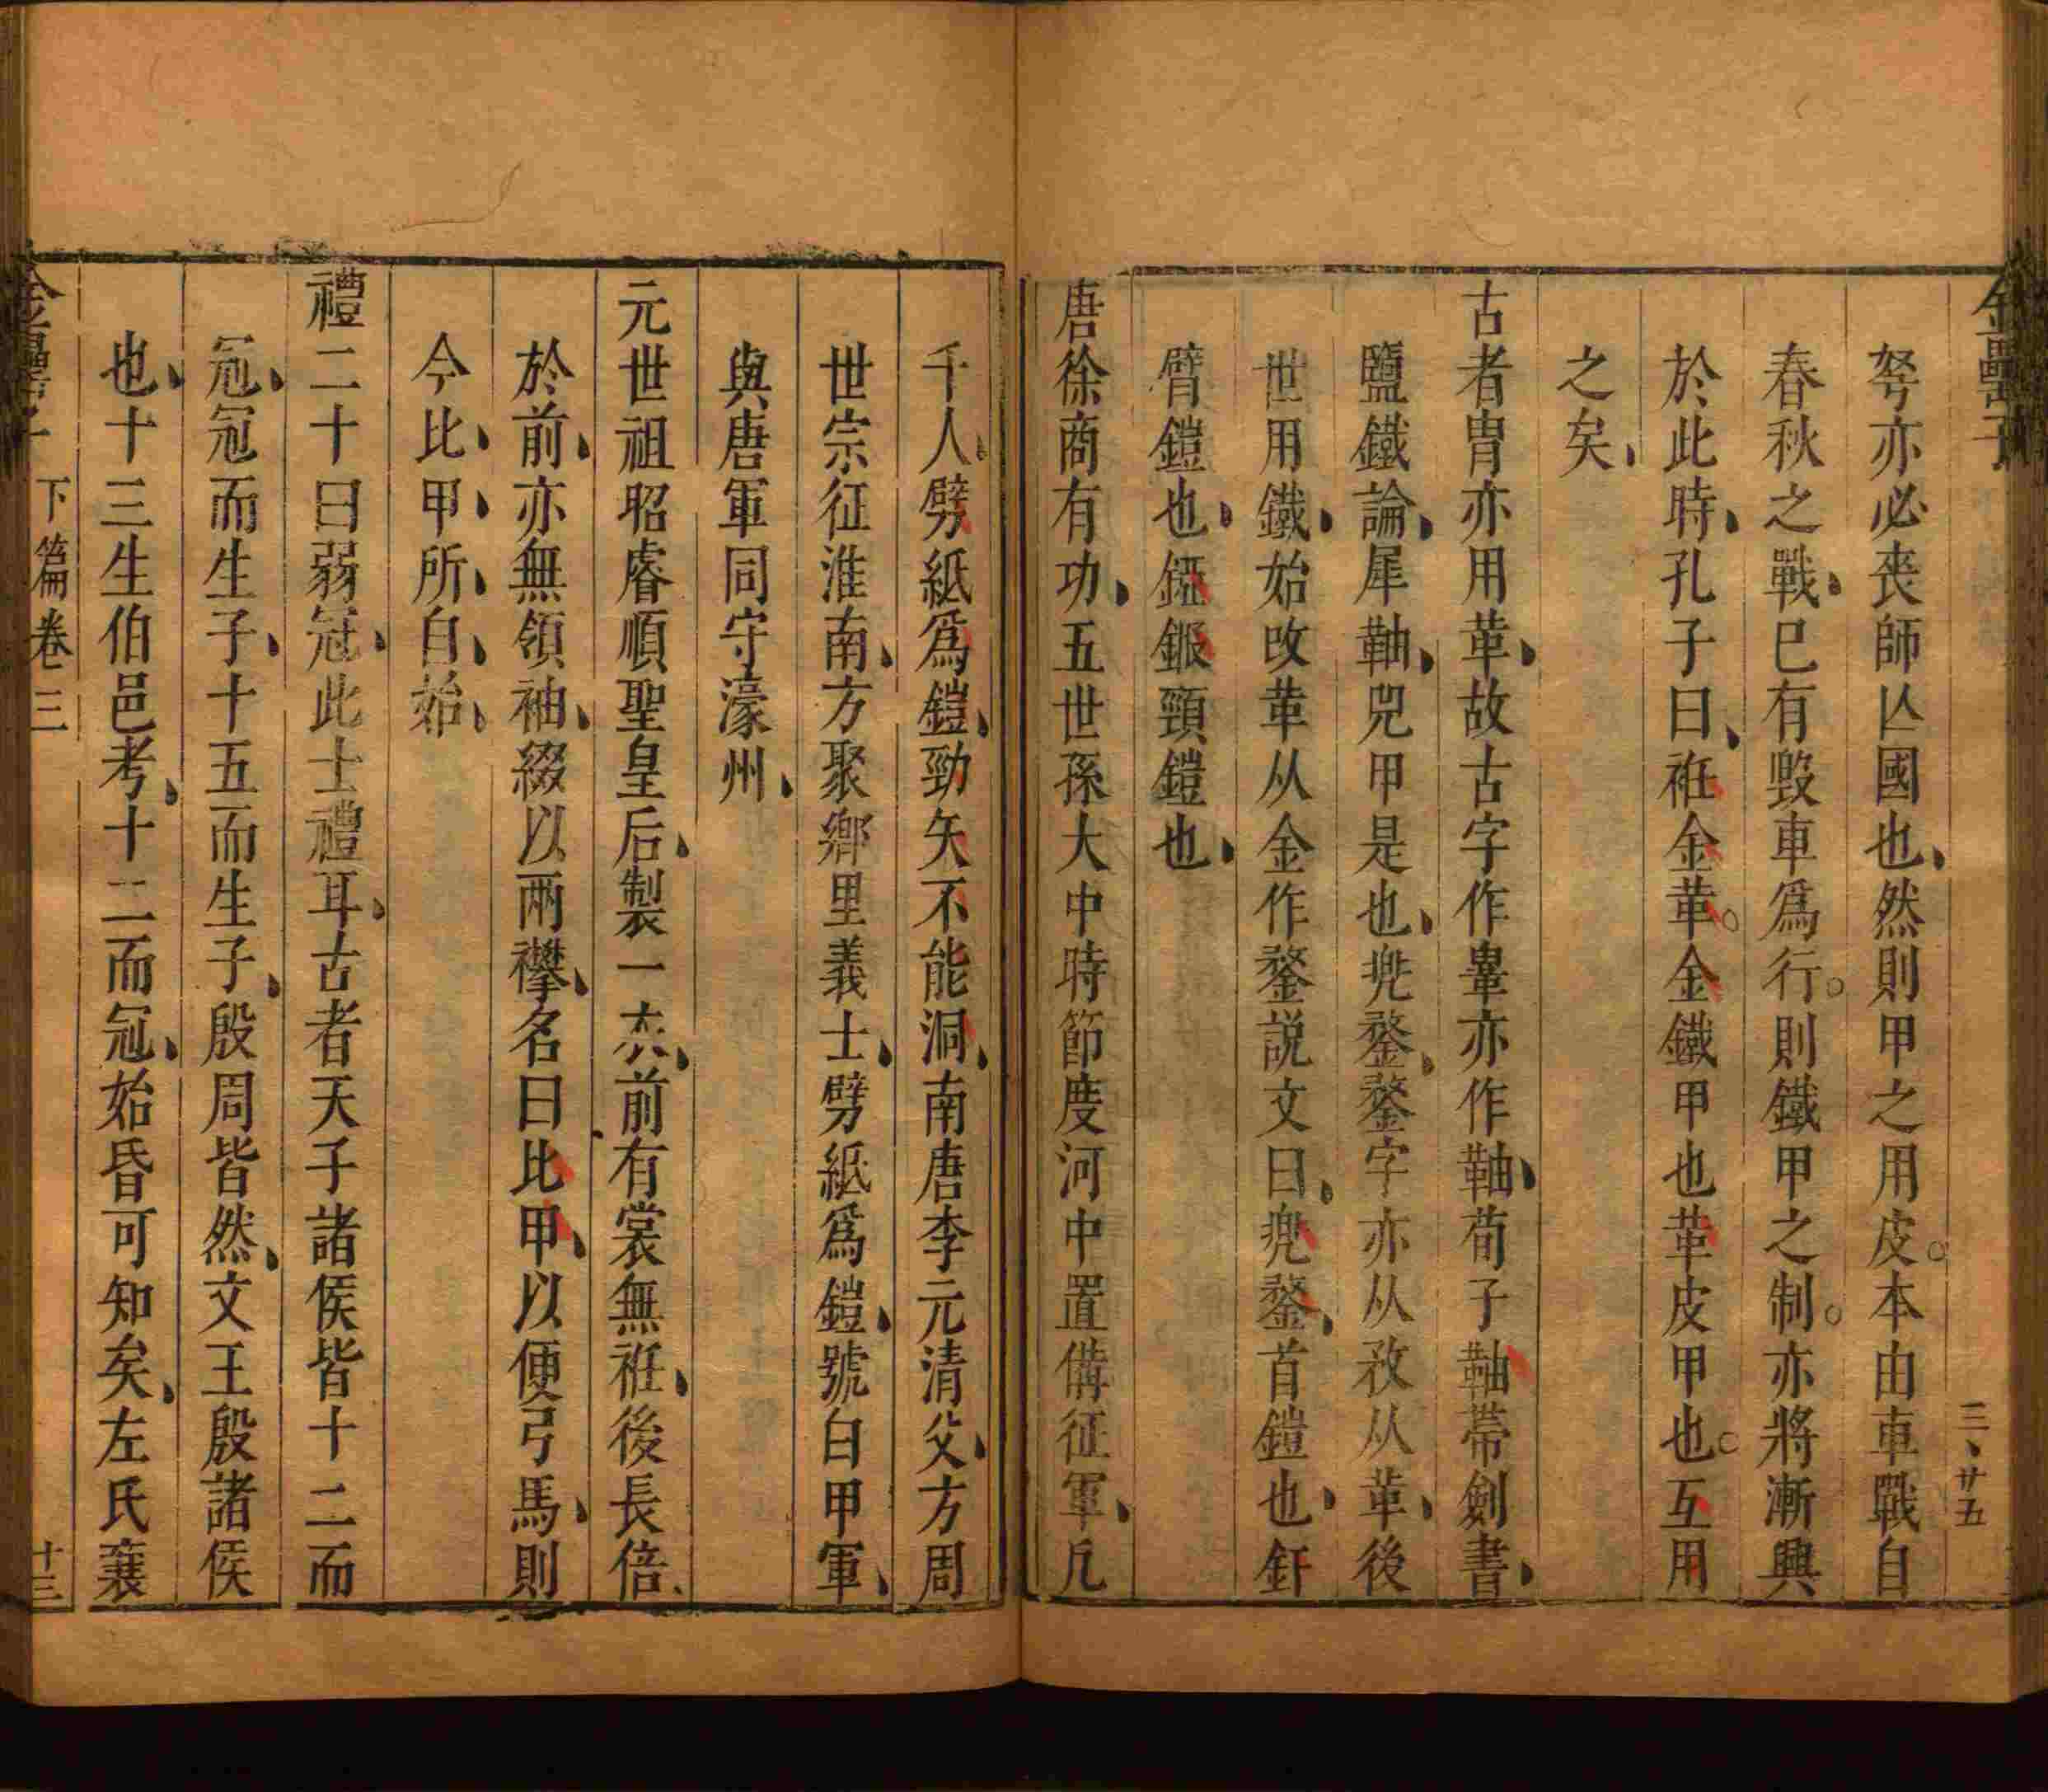 金罍子
三、廿五
弩亦必喪師亾國也然則甲之用皮本由車戰自
春秋之戰已有毀車爲行則鐵甲之制亦將漸興
於此時孔子曰袵金革金鐵甲也革皮甲也互用
之矣
古者冑亦用革故古字作䩜亦作䩜荀子䩜帶劍書
鹽鐵論犀䩜兕甲是也兠鍪鍪字亦从敄从革後
世用鐵始改革从金作鍪說文曰兠鍪首鎧也釬
臂鎧也錏鍜頸鎧也
唐徐商有功五世孫大中時節度河中置備征軍凡
千人劈紙爲鎧勁矢不能洞南唐李元清父方周
世宗征淮南方聚鄉里義士劈紙爲鎧號白甲軍
與唐軍同守濠州
元世祖昭睿順聖皇后製一衣前有裳無袵後長倍
於前亦無領袖綴以兩襻名曰比甲以便弓馬則
今比甲所自始
禮二十曰弱冠此士禮耳古者天子諸侯皆十二而
冠冠而生子十五而生子殷周皆然文王殷諸侯
也十三生伯邑考十二而冠始昏可知矣左氏襄
金罍子
下篇卷三
十三